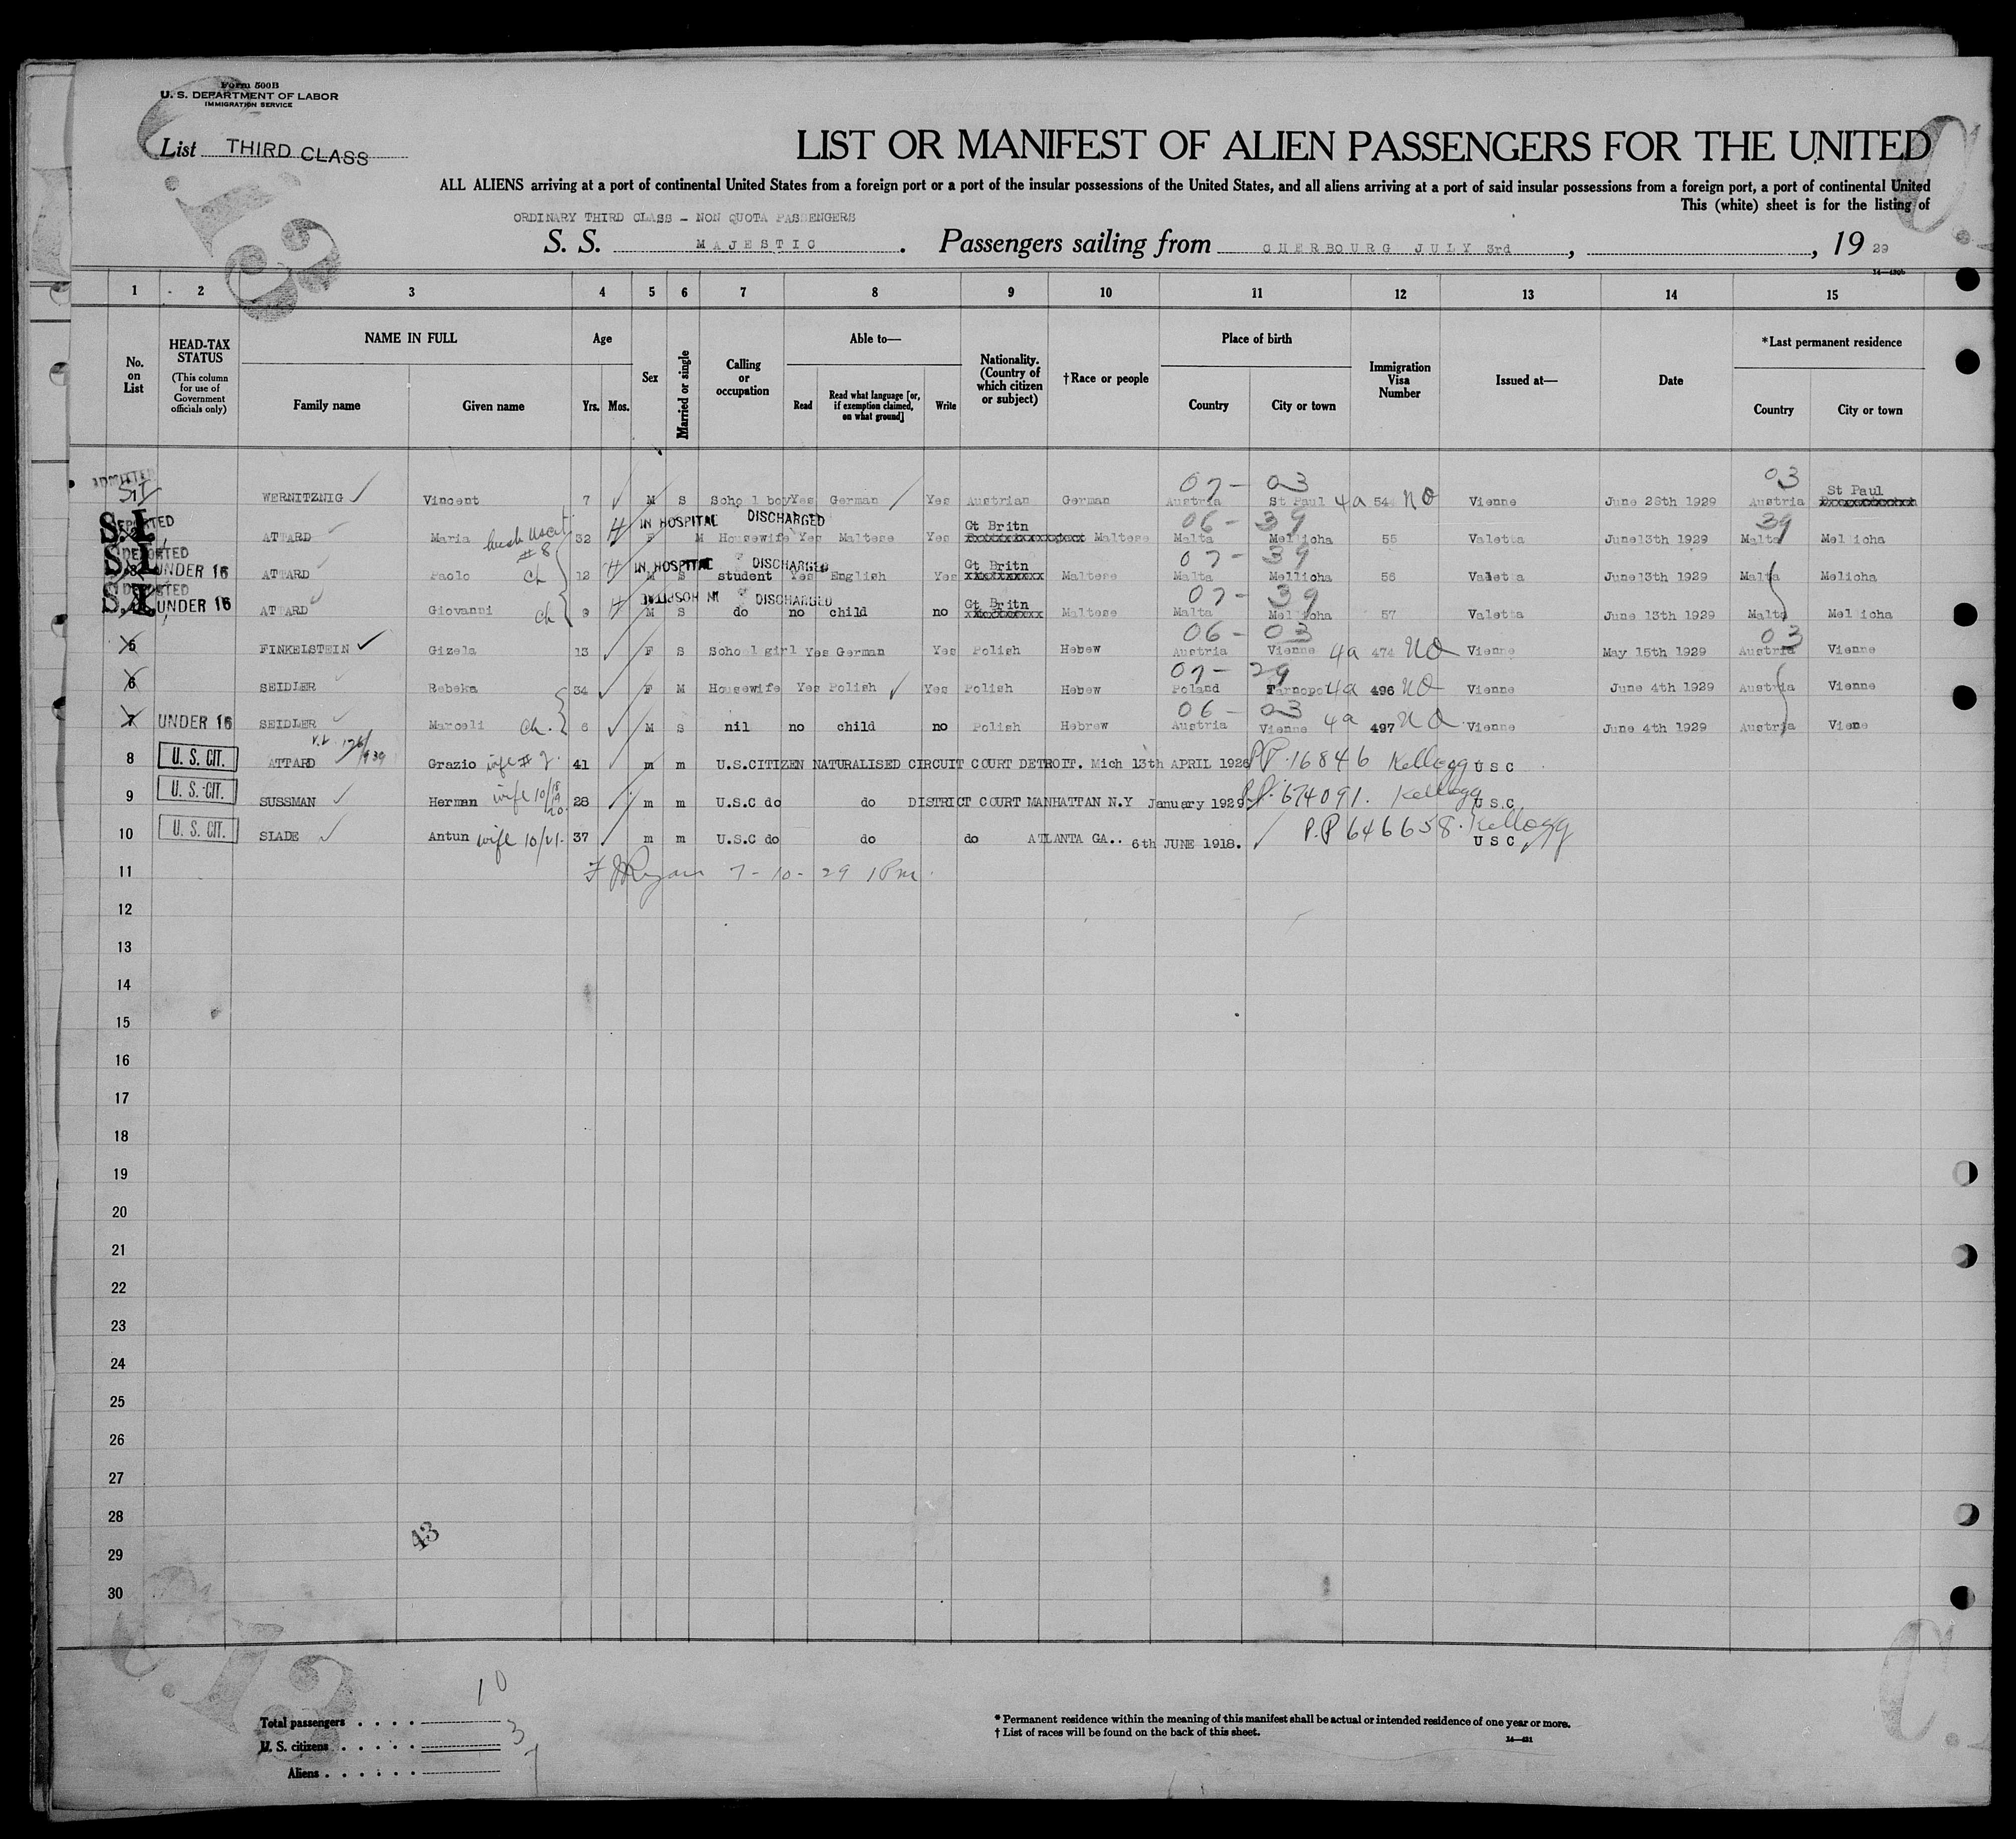 Form 500B
U. S. DEPARTMENT OF LABOR
IMMIGRATION SERVICE
List THIRD CLASS
LIST OR MANIFEST OF ALIEN PASSENGERS FOR THE UNITED
ALL ALIENS arriving at a port of continental United States from a foreign port or a port of the insular possessions of the United States, and all aliens arriving at a port of said insular possessions from a foreign port, a port of continental United
This (white) sheet is for the listing of
ORDINARY THIRD CLASS - NON QUOTA PASSENGERS
S. S. MAJESTIC. Passengers sailing from CHERBOURG JULY 3rd, , 19 29
1 2 3 4 5 6 7 8 9 10 11 12 13 14 15
No. on List
HEAD-TAX STATUS (This column for use of Government officials only)
NAME IN FULL
Family name Given name
Age
Yrs. Mos.
Sex
Married or single
Calling or occupation
Able to—
Read
Read what language [or, if exemption claimed, on what ground]
Write
Nationality. (Country of which citizen or subject)
†Race or people
Place of birth
Country City or town
Immigration Visa Number
Issued at—
Date
*Last permanent residence
Country City or town
ADMITTED
07- 03 03
St Paul
SI WERNITZNIG Vincent 7 M S School boy Yes German Yes Austrian German Austria St Paul 4a 54 NQ Vienne June 28th 1929 Austria
DEPORTED IN HOSPITAL DISCHARGED Gt Britn 06- 39 39
S.I. ATTARD Maria 32 F M Housewife Yes Maltese Yes Maltese Malta Mellicha 55 Valetta June13th 1929 Malta Mellicha
husb USCit #8
DEPORTED IN HOSPITAL DISCHARGED Gt Britn 07- 39
S.I. UNDER 16 ATTARD Paolo ch 12 M S student Yes English Yes Maltese Malta Mellicha 56 Valetta June13th 1929 Malta Melicha
DEPORTED DISCHARGED Gt Britn 07- 39
S.I. UNDER 16 ATTARD Giovanni ch 9 M S do no child no Maltese Malta Mellicha 57 Valetta June 13th 1929 Malta Mellicha
06- 03 03
5 FINKELSTEIN Gizela 13 F S School girl Yes German Yes Polish Hebew Austria Vienne 4a 474 NQ Vienne May 15th 1929 Austria Vienne
07- 29
6 SEIDLER Rebeka 34 F M Housewife Yes Polish Yes Polish Hebew Poland Tarnopol 4a 496 NQ Vienne June 4th 1929 Austria Vienne
06- 03
7 UNDER 16 SEIDLER Marceli Ch. 6 M S nil no child no Polish Hebrew Austria Vienne 4a 497 NQ Vienne June 4th 1929 Austria Viene
8 U. S. CIT. ATTARD Grazio wife # 2. 41 m m U.S.CITIZEN NATURALISED CIRCUIT COURT DETROIT. Mich 13th APRIL 1926 PP. 16846 Kellogg U S C
9 U. S. CIT. SUSSMAN Herman wife 10/18 19 20 28 m m U.S.C do do DISTRICT COURT MANHATTAN N.Y January 1929. P.P. 674091. Kellogg U S C
10 U. S. CIT. SLADE Antun wife 10/21. 37 m m U.S.C do do do ATLANTA GA.. 6th JUNE 1918. P.P 646658. Kellogg U S C
11 F J Ryan 7-10-29 1Pm.
12
13
14
15
16
17
18
19
20
21
22
23
24
25
26
27
28
29
30
43
Total passengers . . . . 10
U. S. citizens . . . . . 3
Aliens . . . . . . 7
* Permanent residence within the meaning of this manifest shall be actual or intended residence of one year or more.
† List of races will be found on the back of this sheet.
14—431